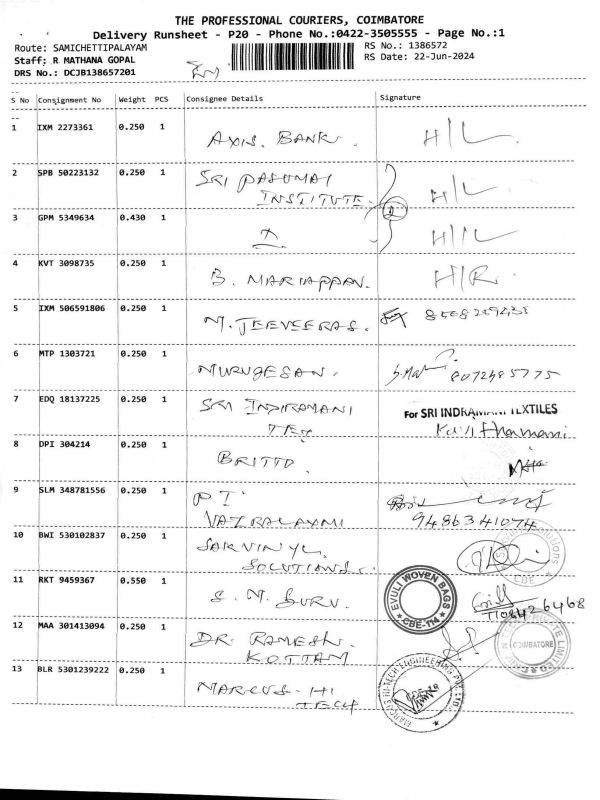 THE PROFESSIONAL COURIERS, COIMBATORE
Delivery Runsheet - P20 - Phone No.:0422-3505555 - Page No.:1
Route: SAMICHETTIPALAYAM
RS No.: 1386572
Staff: R MATHANA GOPAL
RS Date: 22-Jun-2024
DRS No.: DCJB138657201
S No Consignment No Weight PCS Consignee Details Signature
1 IXM 2273361 0.250 1 AXIS. BANK. H/L
2 SPB 50223132 0.250 1 SRI PASUMAI H/L
INSTITUTE.
3 GPM 5349634 0.430 1 H/L
4 KVT 3098735 0.250 1 B. MARIAPPAN. H/R.
5 IXM 506591806 0.250 1 M. JEEVEERAS.
6 MTP 1303721 0.250 1 MURUGESAN. 8072485775
7 EDQ 18137225 0.250 1 SRI INDIRAMANI For SRI INDRAMANI TEXTILES
TEX
8 DPI 304214 0.250 1 BRITTO.
9 SLM 348781556 0.250 1 P T
VAZRALAXMI 9486341074
10 BWI 530102837 0.250 1 SARVINYL
SOLUTIONS. CBE
11 RKT 9459367 0.550 1 S. N. GURU. EVULI WOVEN BAGS CBE-114
12 MAA 301413094 0.250 1 DR. RAMESH. COIMBATORE
KOTTAM
13 BLR 5301239222 0.250 1 MARCUS - HI MARCUS HI-TECH ENGINEERING PVT. LTD.
TECH